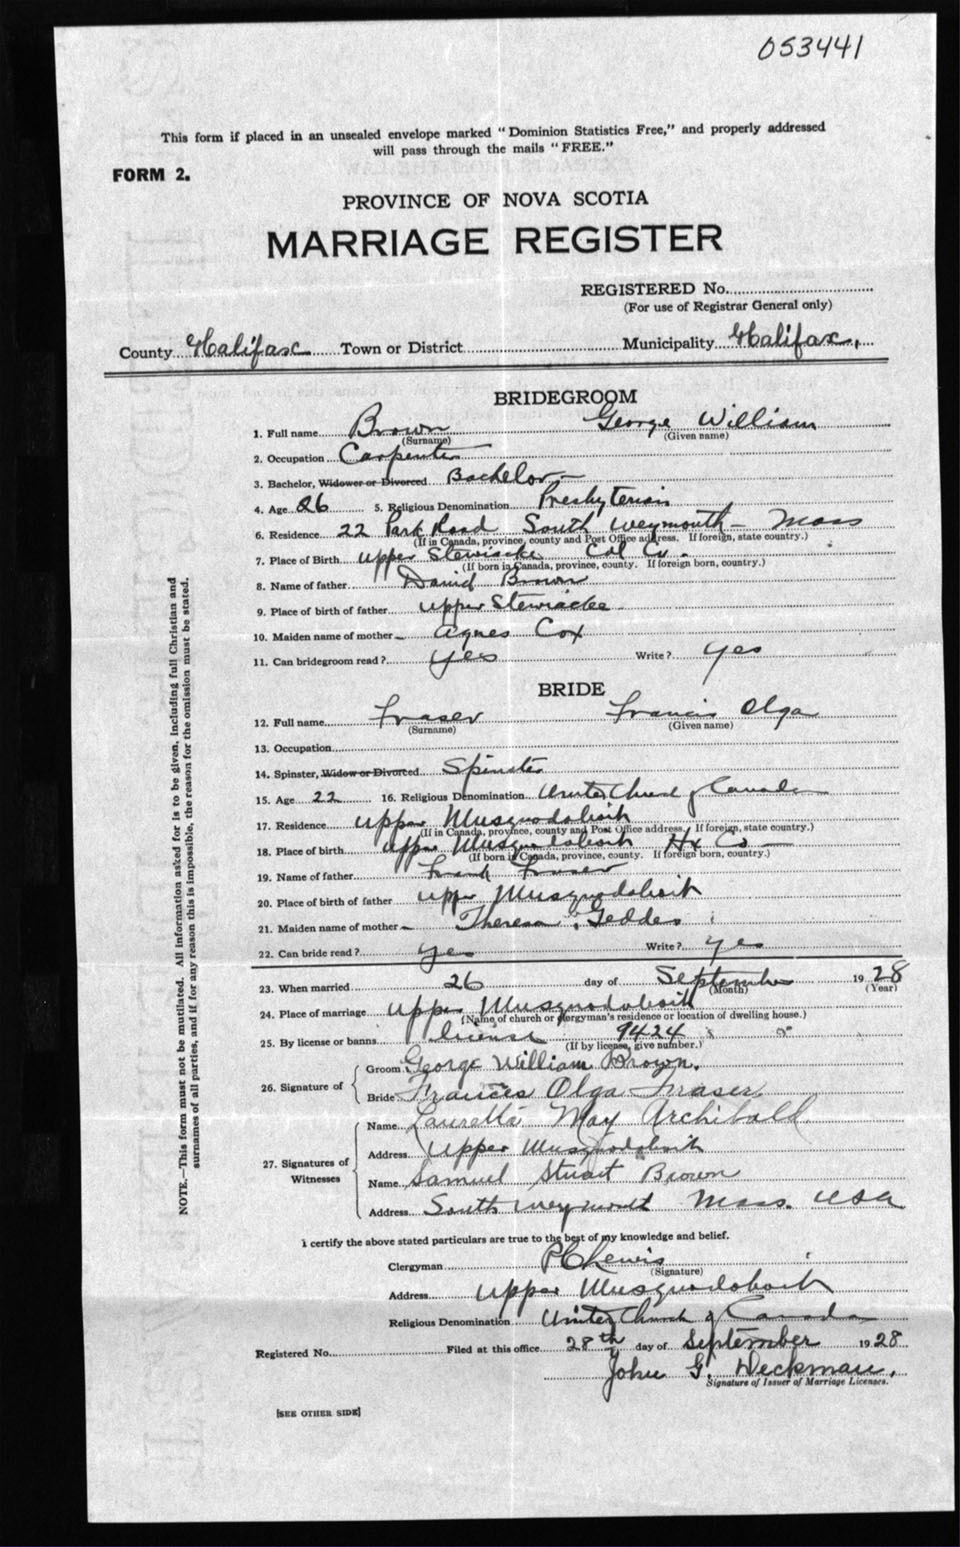 053441
This form if placed in an unsealed envelope marked "Dominion Statistics Free," and properly addressed
will pass through the mails "FREE."
FORM 2.
PROVINCE OF NOVA SCOTIA
MARRIAGE REGISTER
REGISTERED No.
(For use of Registrar General only)
County Halifax Town or District Municipality Halifax,
BRIDEGROOM
1. Full name Brown George William
(Surname) (Given name)
2. Occupation Carpenter
3. Bachelor, Widower or Divorced Bachelor
4. Age 26 5. Religious Denomination Presbyterian
6. Residence 22 Park Road South Weymouth - Mass
(If in Canada, province, county and Post Office address. If foreign, state country.)
7. Place of Birth Upper Stewiacke Col Co.
(If born in Canada, province, county. If foreign born, country.)
8. Name of father David Brown
9. Place of birth of father Upper Stewiacke
10. Maiden name of mother Agnes Cox
11. Can bridegroom read? yes Write? yes
BRIDE
12. Full name Fraser Francis Olga
(Surname) (Given name)
13. Occupation
14. Spinster, Widow or Divorced Spinster
15. Age 22 16. Religious Denomination United Church of Canada
17. Residence Upper Musquodoboit
(If in Canada, province, county and Post Office address. If foreign, state country.)
18. Place of birth Upper Musquodoboit Hx Co -
(If born in Canada, province, county. If foreign born, country.)
19. Name of father Frank Fraser
20. Place of birth of father Upper Musquodoboit
21. Maiden name of mother Theresa Geddes
22. Can bride read? yes Write? yes
23. When married 26 day of September 1928
(Month) (Year)
24. Place of marriage Upper Musquodoboit
(Name of church or clergyman's residence or location of dwelling house.)
25. By license or banns License 9424
(If by license, give number.)
26. Signature of
Groom George William Brown.
Bride Frances Olga Fraser
27. Signatures of Witnesses
Name Lauretta May Archibald
Address Upper Musquodoboit
Name Samuel Stuart Brown
Address South Weymouth Mass. USA
I certify the above stated particulars are true to the best of my knowledge and belief.
Clergyman P C Lewis
(Signature)
Address Upper Musquodoboit
Religious Denomination United Church of Canada
Registered No. Filed at this office 28th day of September 1928
John G. Deckman,
Signature of Issuer of Marriage Licenses.
[SEE OTHER SIDE]
NOTE.—This form must not be mutilated. All information asked for is to be given, including full Christian and
surnames of all parties, and if for any reason this is impossible, the reason for the omission must be stated.